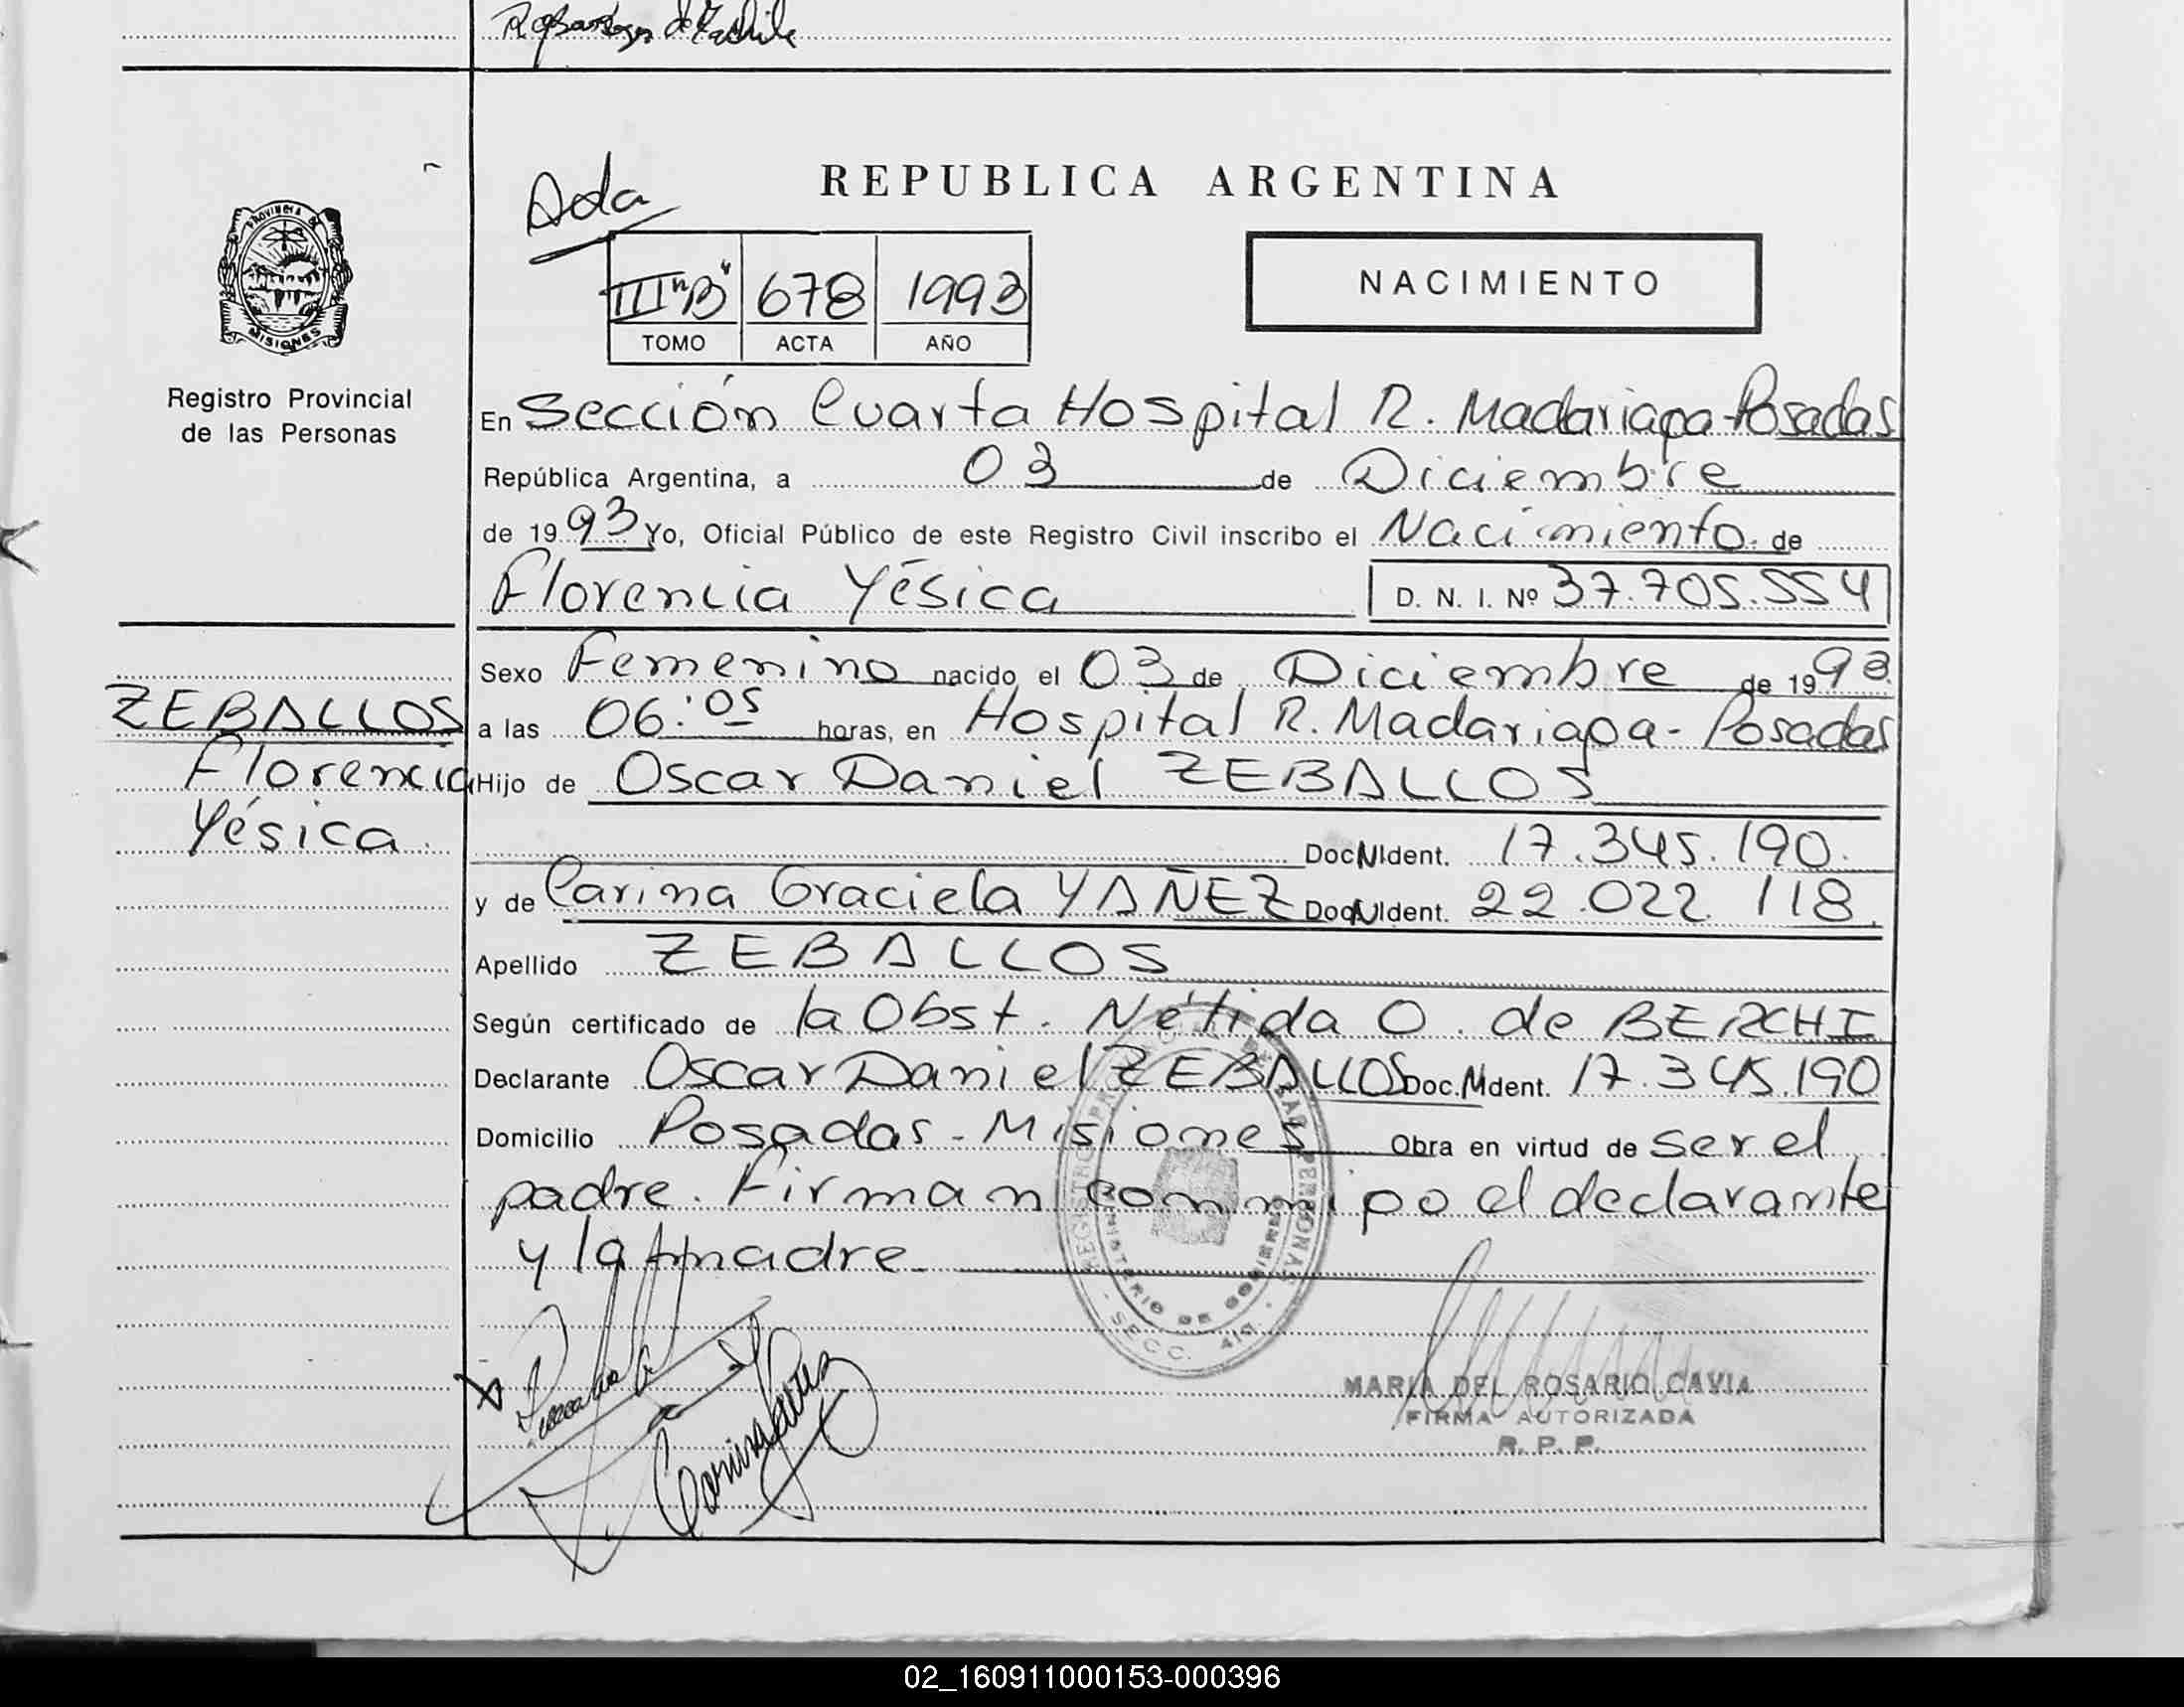 REPUBLICA ARGENTINA
Ada
III "B" 678 1993
TOMO ACTA AÑO
NACIMIENTO
PROVINCIA DE
MISIONES
Registro Provincial
de las Personas
En Sección Cuarta Hospital R. Madariaga-Posadas
República Argentina, a 03 de Diciembre
de 1993 Yo, Oficial Público de este Registro Civil inscribo el Nacimiento de
Florencia Yésica D. N. I. Nº 37.705.554
Sexo Femenino nacido el 03 de Diciembre de 1993
a las 06:05 horas, en Hospital R. Madariaga - Posadas
Hijo de Oscar Daniel ZEBALLOS
Doc.N.Ident. 17.345.190.
y de Carina Graciela YAÑEZ Doc.N.Ident. 22.022.118.
Apellido ZEBALLOS
Según certificado de la Obst. Nélida O. de BERCHI
Declarante Oscar Daniel ZEBALLOS Doc.N.Ident. 17.345.190
Domicilio Posadas - Misiones Obra en virtud de ser el
padre. Firman conmigo el declarante
y la madre.
ZEBALLOS
Florencia
Yésica.
MINISTERIO DE GOBIERNO
SECC. 4ta.
MARIA DEL ROSARIO CAVIA
FIRMA AUTORIZADA
R. P. P.
02_160911000153-000396